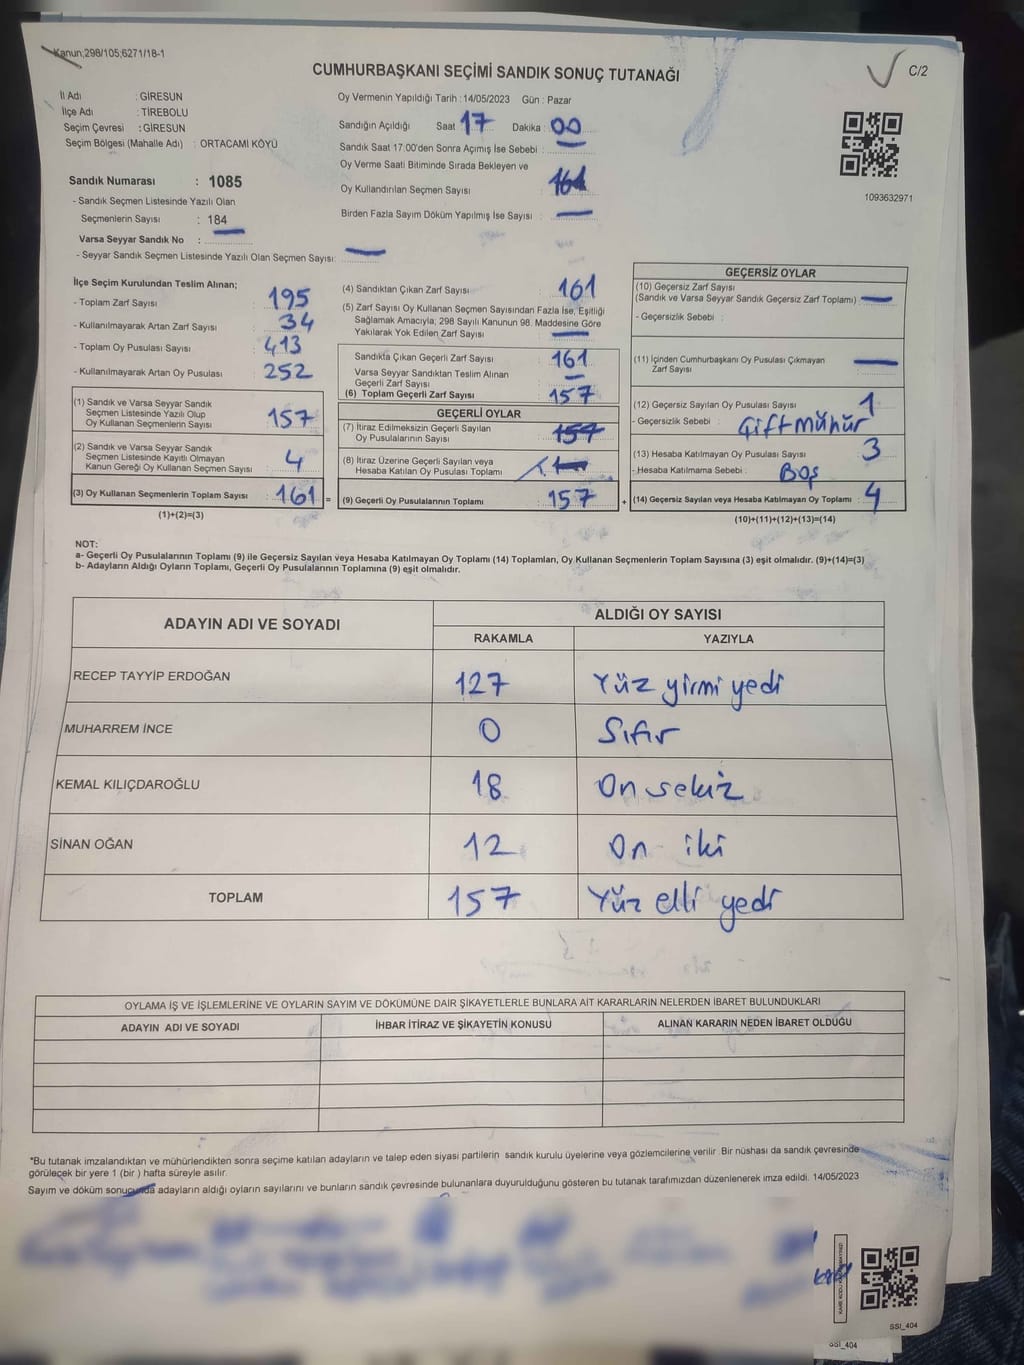 Kanun;298/105,6271/18-1
CUMHURBAŞKANI SEÇİMİ SANDIK SONUÇ TUTANAĞI
C/2
İl Adı : GİRESUN
İlçe Adı : TİREBOLU
Seçim Çevresi : GİRESUN
Seçim Bölgesi (Mahalle Adı) : ORTACAMİ KÖYÜ
Sandık Numarası : 1085
- Sandık Seçmen Listesinde Yazılı Olan
Seçmenlerin Sayısı : 184
Varsa Seyyar Sandık No :
- Seyyar Sandık Seçmen Listesinde Yazılı Olan Seçmen Sayısı:
Oy Vermenin Yapıldığı Tarih : 14/05/2023 Gün : Pazar
Sandığın Açıldığı Saat 17 Dakika : 00
Sandık Saat 17:00'den Sonra Açımış İse Sebebi :
Oy Verme Saati Bitiminde Sırada Bekleyen ve
Oy Kullandırılan Seçmen Sayısı
Birden Fazla Sayım Döküm Yapılmış İse Sayısı :
1093632971
İlçe Seçim Kurulundan Teslim Alınan;
- Toplam Zarf Sayısı : 195
- Kullanılmayarak Artan Zarf Sayısı : 34
- Toplam Oy Pusulası Sayısı : 413
- Kullanılmayarak Artan Oy Pusulası : 252
(1) Sandık ve Varsa Seyyar Sandık
Seçmen Listesinde Yazılı Olup
Oy Kullanan Seçmenlerin Sayısı : 157
(2) Sandık ve Varsa Seyyar Sandık
Seçmen Listesinde Kayıtlı Olmayan
Kanun Gereği Oy Kullanan Seçmen Sayısı : 4
(3) Oy Kullanan Seçmenlerin Toplam Sayısı : 161 =
(1)+(2)=(3)
(4) Sandıktan Çıkan Zarf Sayısı : 161
(5) Zarf Sayısı Oy Kullanan Seçmen Sayısından Fazla İse, Eşitliği
Sağlamak Amacıyla, 298 Sayılı Kanunun 98. Maddesine Göre
Yakılarak Yok Edilen Zarf Sayısı :
Sandıkta Çıkan Geçerli Zarf Sayısı : 161
Varsa Seyyar Sandıktan Teslim Alınan
Geçerli Zarf Sayısı :
(6) Toplam Geçerli Zarf Sayısı : 157
GEÇERLİ OYLAR
(7) İtiraz Edilmeksizin Geçerli Sayılan
Oy Pusulalarının Sayısı : 157
(8) İtiraz Üzerine Geçerli Sayılan veya
Hesaba Katılan Oy Pusulası Toplamı
(9) Geçerli Oy Pusulalarının Toplamı : 157 +
GEÇERSİZ OYLAR
(10) Geçersiz Zarf Sayısı
(Sandık ve Varsa Seyyar Sandık Geçersiz Zarf Toplamı) :
- Geçersizlik Sebebi :
(11) İçinden Cumhurbaşkanı Oy Pusulası Çıkmayan
Zarf Sayısı :
(12) Geçersiz Sayılan Oy Pusulası Sayısı : 1
- Geçersizlik Sebebi : Çift mühür
(13) Hesaba Katılmayan Oy Pusulası Sayısı : 3
- Hesaba Katılmama Sebebi : Boş
(14) Geçersiz Sayılan veya Hesaba Katılmayan Oy Toplamı : 4
(10)+(11)+(12)+(13)=(14)
NOT:
a- Geçerli Oy Pusulalarının Toplamı (9) ile Geçersiz Sayılan veya Hesaba Katılmayan Oy Toplamı (14) Toplamları, Oy Kullanan Seçmenlerin Toplam Sayısına (3) eşit olmalıdır. (9)+(14)=(3)
b- Adayların Aldığı Oyların Toplamı, Geçerli Oy Pusulalarının Toplamına (9) eşit olmalıdır.
ADAYIN ADI VE SOYADI
ALDIĞI OY SAYISI
RAKAMLA YAZIYLA
RECEP TAYYİP ERDOĞAN 127 Yüz yirmi yedi
MUHARREM İNCE 0 Sıfır
KEMAL KILIÇDAROĞLU 18 On sekiz
SİNAN OĞAN 12 On iki
TOPLAM 157 Yüz elli yedi
OYLAMA İŞ VE İŞLEMLERİNE VE OYLARIN SAYIM VE DÖKÜMÜNE DAİR ŞİKAYETLERLE BUNLARA AİT KARARLARIN NELERDEN İBARET BULUNDUKLARI
ADAYIN ADI VE SOYADI İHBAR İTİRAZ VE ŞİKAYETİN KONUSU ALINAN KARARIN NEDEN İBARET OLDUĞU
*Bu tutanak imzalandıktan ve mühürlendikten sonra seçime katılan adayların ve talep eden siyasi partilerin sandık kurulu üyelerine veya gözlemcilerine verilir .Bir nüshası da sandık çevresinde
görülecek bir yere 1 (bir ) hafta süreyle asılır.
Sayım ve döküm sonucunda adayların aldığı oyların sayılarını ve bunların sandık çevresinde bulunanlara duyurulduğunu gösteren bu tutanak tarafımızdan düzenlenerek imza edildi. 14/05/2023
SSI_404